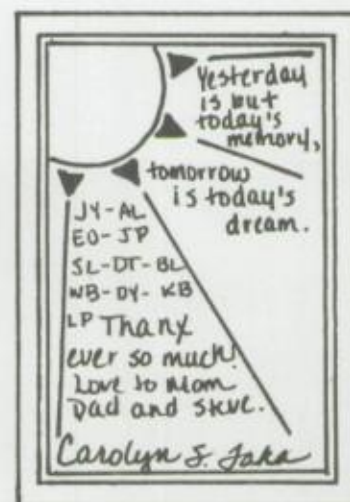 Yesterday
is but
today's
memory,
tomorrow
is today's
dream.
JY-AL
EO-JP
SL-DT-BL
WB-DY-KB
LP Thanx
ever so much!
Love to Mom
Dad and Steve.
Carolyn S.